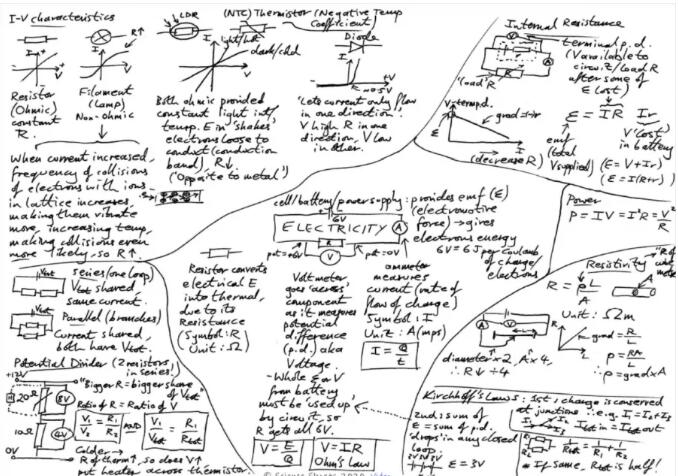 I-V characteristics
R↑
LDR
(NTC) Thermistor (Negative Temp
Coefficient)
light/hot
dark/cold
Diode
Resistor
(Ohmic)
constant
R.
Filament
(Lamp)
Non-ohmic
Both ohmic provided
constant light int/
temp. E in 'shakes'
electrons loose to
conduct (conduction
band), R↓.
('Opposite to metal')
'Lets current only flow
in one direction'
V high R in one
direction, V low
in other.
When current increased,
frequency of collisions
of electrons with ions
in lattice increases,
making them vibrate
more, increasing temp,
making collisions even
more likely, so R↑.
Internal Resistance
terminal p.d.
(V available to
circuit/load R
after some of
E lost)
'load' R
V=term p.d.
grad = -r
(decrease R)
ε = IR + Ir
emf
(total
V supplied)
V 'lost'
in battery
(E = V + Ir)
(E = I(R+r))
Power
P = IV = I²R = V²/R
cell/battery/power supply: provides emf (E)
(electromotive
force) → gives
electrons energy
6V = 6J per coulomb
of charge/
electrons
6V
ELECTRICITY
A
R
V
pot = +6V
pot = 0V
Resistor converts
electrical E
into thermal,
due to its
Resistance
(Symbol: R)
Unit: Ω
Voltmeter
goes 'across'
component
as it measures
potential
difference
(p.d.) aka
Voltage.
- Whole E or V
from battery
must be used up
by circuit, so
R gets all 6V.
ammeter
measures
current (rate of
flow of charge)
Symbol: I
Unit: A (mps)
I = Q/t
V = E/Q
V = IR
Ohm's Law
Vtot
series (one loop)
Vtot shared,
same current.
Parallel (branches)
Current shared,
both have Vtot.
Potential Divider (2 resistors,
in series)
+12V
20Ω
8V
10Ω
4V
0V
"Bigger R = bigger share
of Vtot"
Ratio of R = Ratio of V
V₁/V₂ = R₁/R₂ AND V₁/Vtot = R₁/Rtot
Colder →
R of therm↑, so does V↑
put heater across thermistor.
Resistivity
R = ρL/A
Unit: Ωm
diameter × 2, A × 4,
∴ R ↓ ÷ 4
grad = R/L
ρ = RA/L
∴ ρ = grad × A
Kirchhoff's Laws: 1st, charge is conserved
at junctions ∴ e.g. I₁ = I₂ + I₃
Itot in = Itot out
2nd: sum of
E = sum of p.d.
drops in any closed
loop
E = 3V
1/Rtot = 1/R₁ + 1/R₂
* If same, Rtot is half!